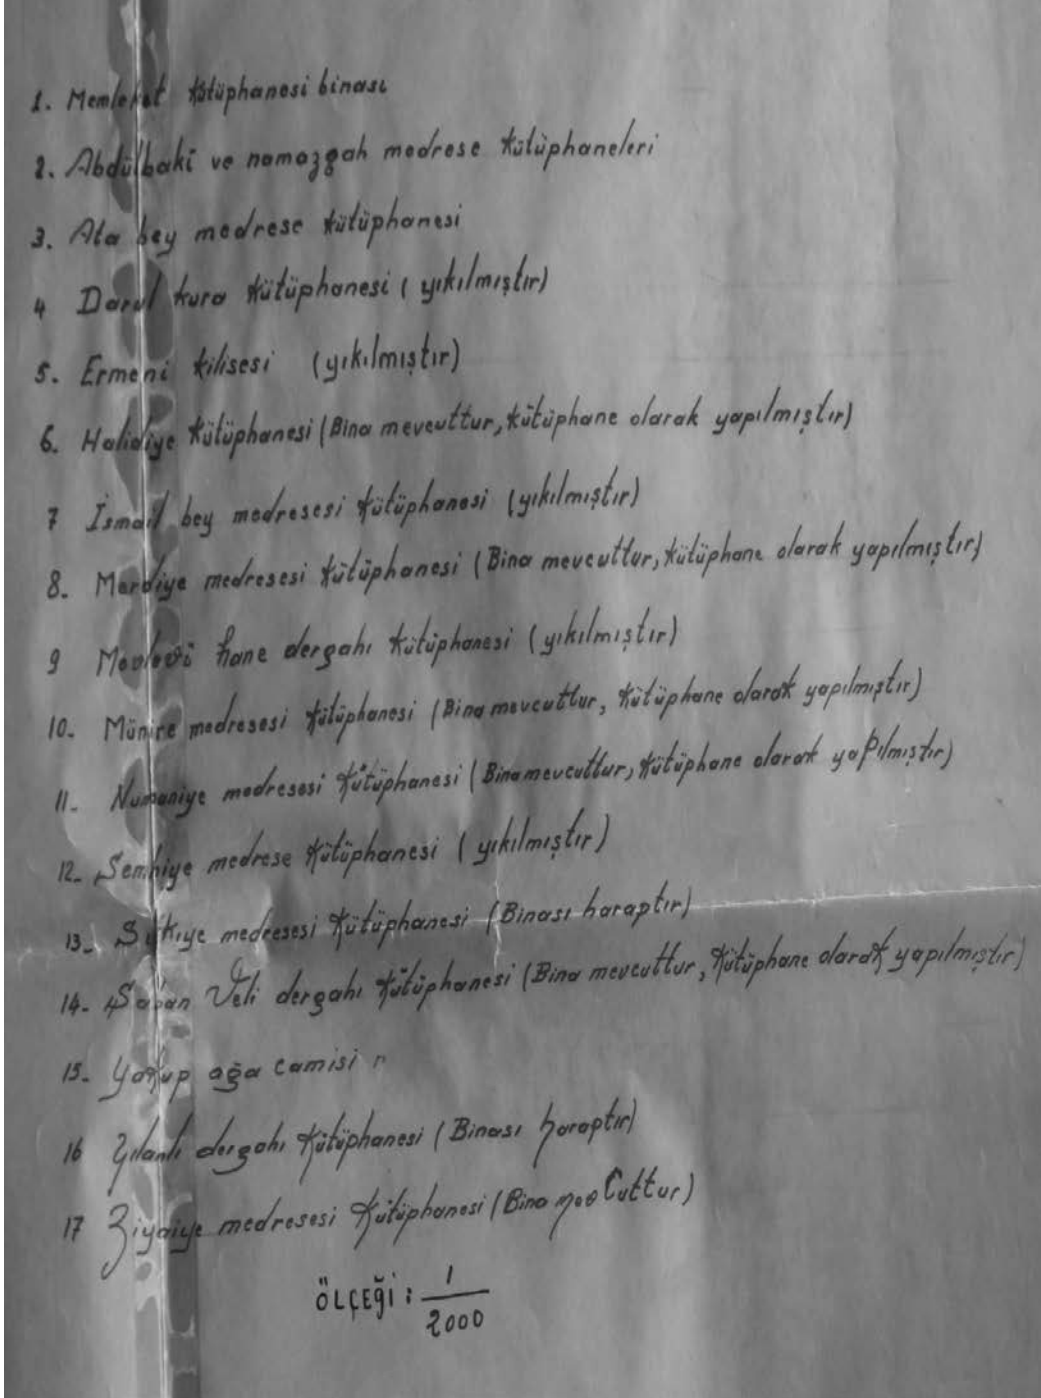 1. Memleket kütüphanesi binası
2. Abdülbaki ve namazgah medrese kütüphaneleri
3. Ata bey medrese kütüphanesi
4 Darul kura kütüphanesi ( yıkılmıştır)
5. Ermeni kilisesi (yıkılmıştır)
6. Halidiye kütüphanesi (Bina mevcuttur, kütüphane olarak yapılmıştır)
7 İsmail bey medresesi kütüphanesi (yıkılmıştır)
8. Merdiye medresesi kütüphanesi (Bina mevcuttur, kütüphane olarak yapılmıştır)
9 Mevlevî hane dergahı kütüphanesi (yıkılmıştır)
10. Münire medresesi kütüphanesi (Bina mevcuttur, kütüphane olarak yapılmıştır)
11- Numaniye medresesi kütüphanesi (Bina mevcuttur, kütüphane olarak yapılmıştır)
12- Semhiye medrese kütüphanesi ( yıkılmıştır)
13- medresesi kütüphanesi (Binası haraptır)
14- Şaban Veli dergahı kütüphanesi (Bina mevcuttur, kütüphane olarak yapılmıştır)
15- Yakup ağa camisi
16 Yılanlı dergahı kütüphanesi (Binası haraptır)
17 Ziyaiye medresesi kütüphanesi (Bina mevcuttur)
ÖLÇEĞİ : 1/2000